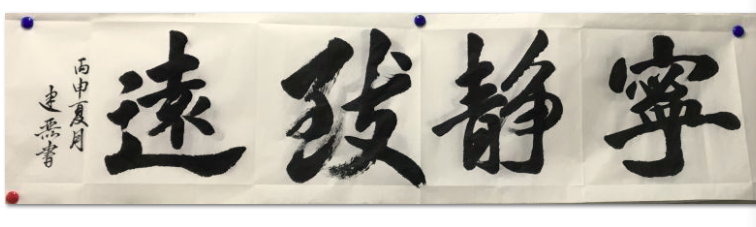 寧静致遠
丙申夏月
建燕書